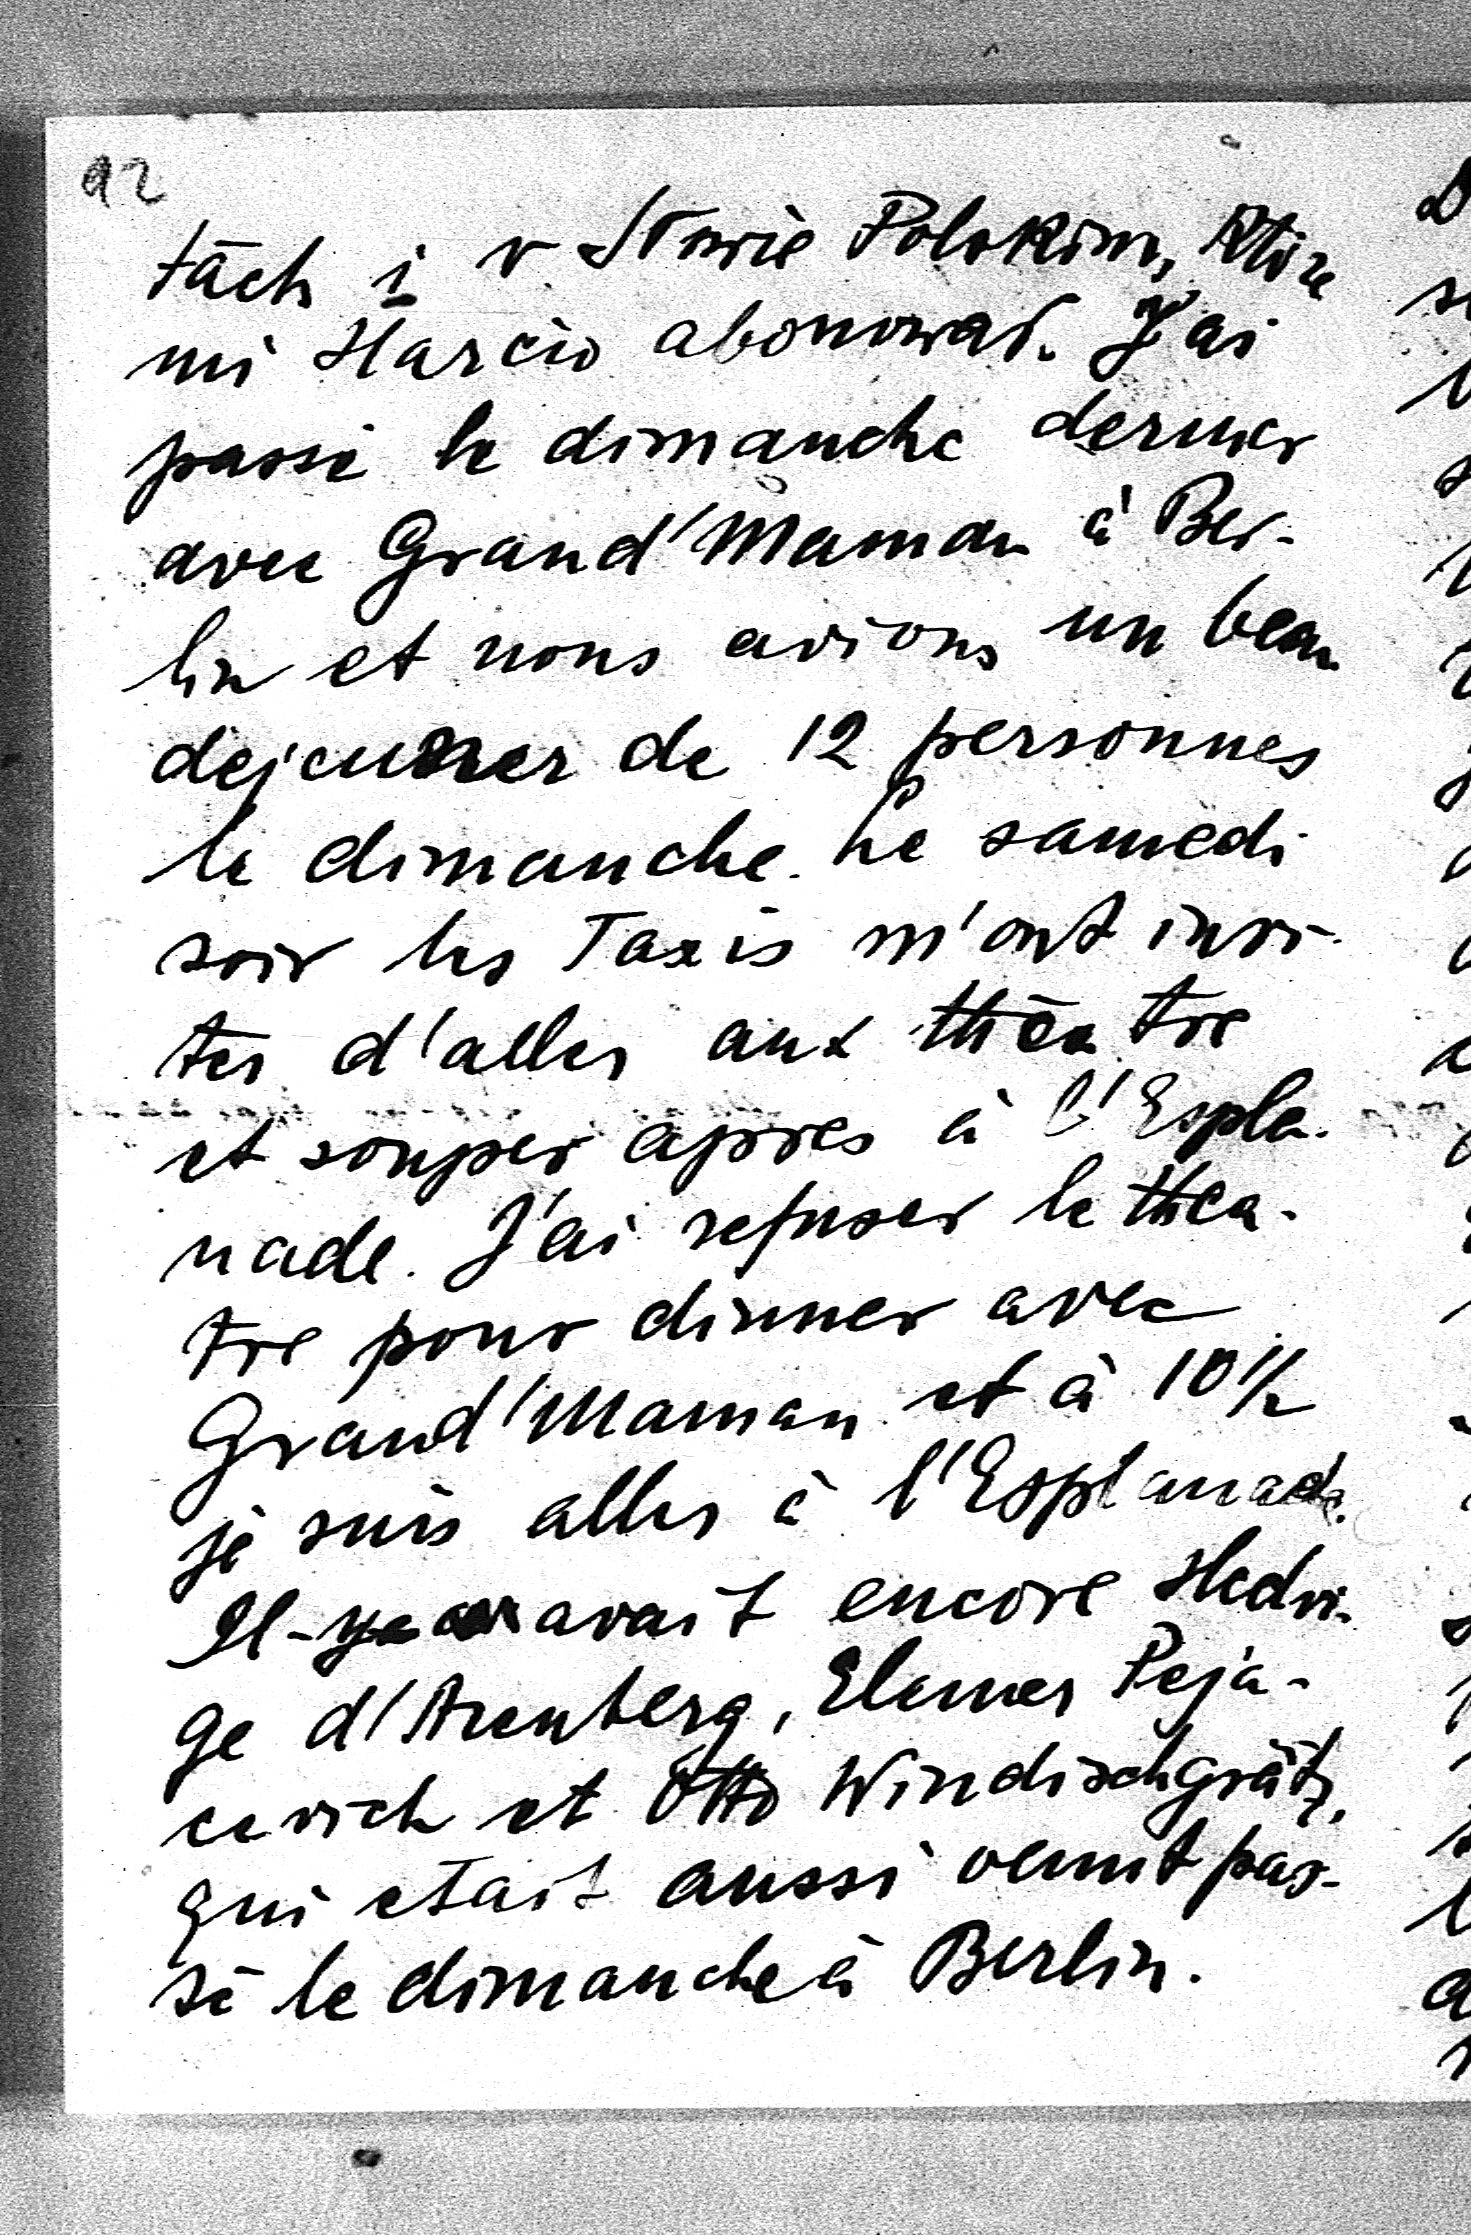 92
tách i v Słowie Polskim, które
mi Harcio abonował. J'ai
passé le dimanche dernier
avec Grand'Maman à Ber-
lin et nous avions un beau
dejeuner de 12 personnes
le dimanche. Le samedi
soir les Taxis m'ont invi-
ter d'aller aux théatre
et souper apres à l'Espla-
nade. J'ai refuser le théa-
tre pour dinner avec
Grand'Maman et à 10 1/2
je suis aller à l'Esplanade.
Il-y avait encore Hedvi-
ge d'Arenberg, Elemer Peja-
cevich et Otto Windischgrätz,
qui etait aussi venut pas-
sé le dimanche à Berlin.